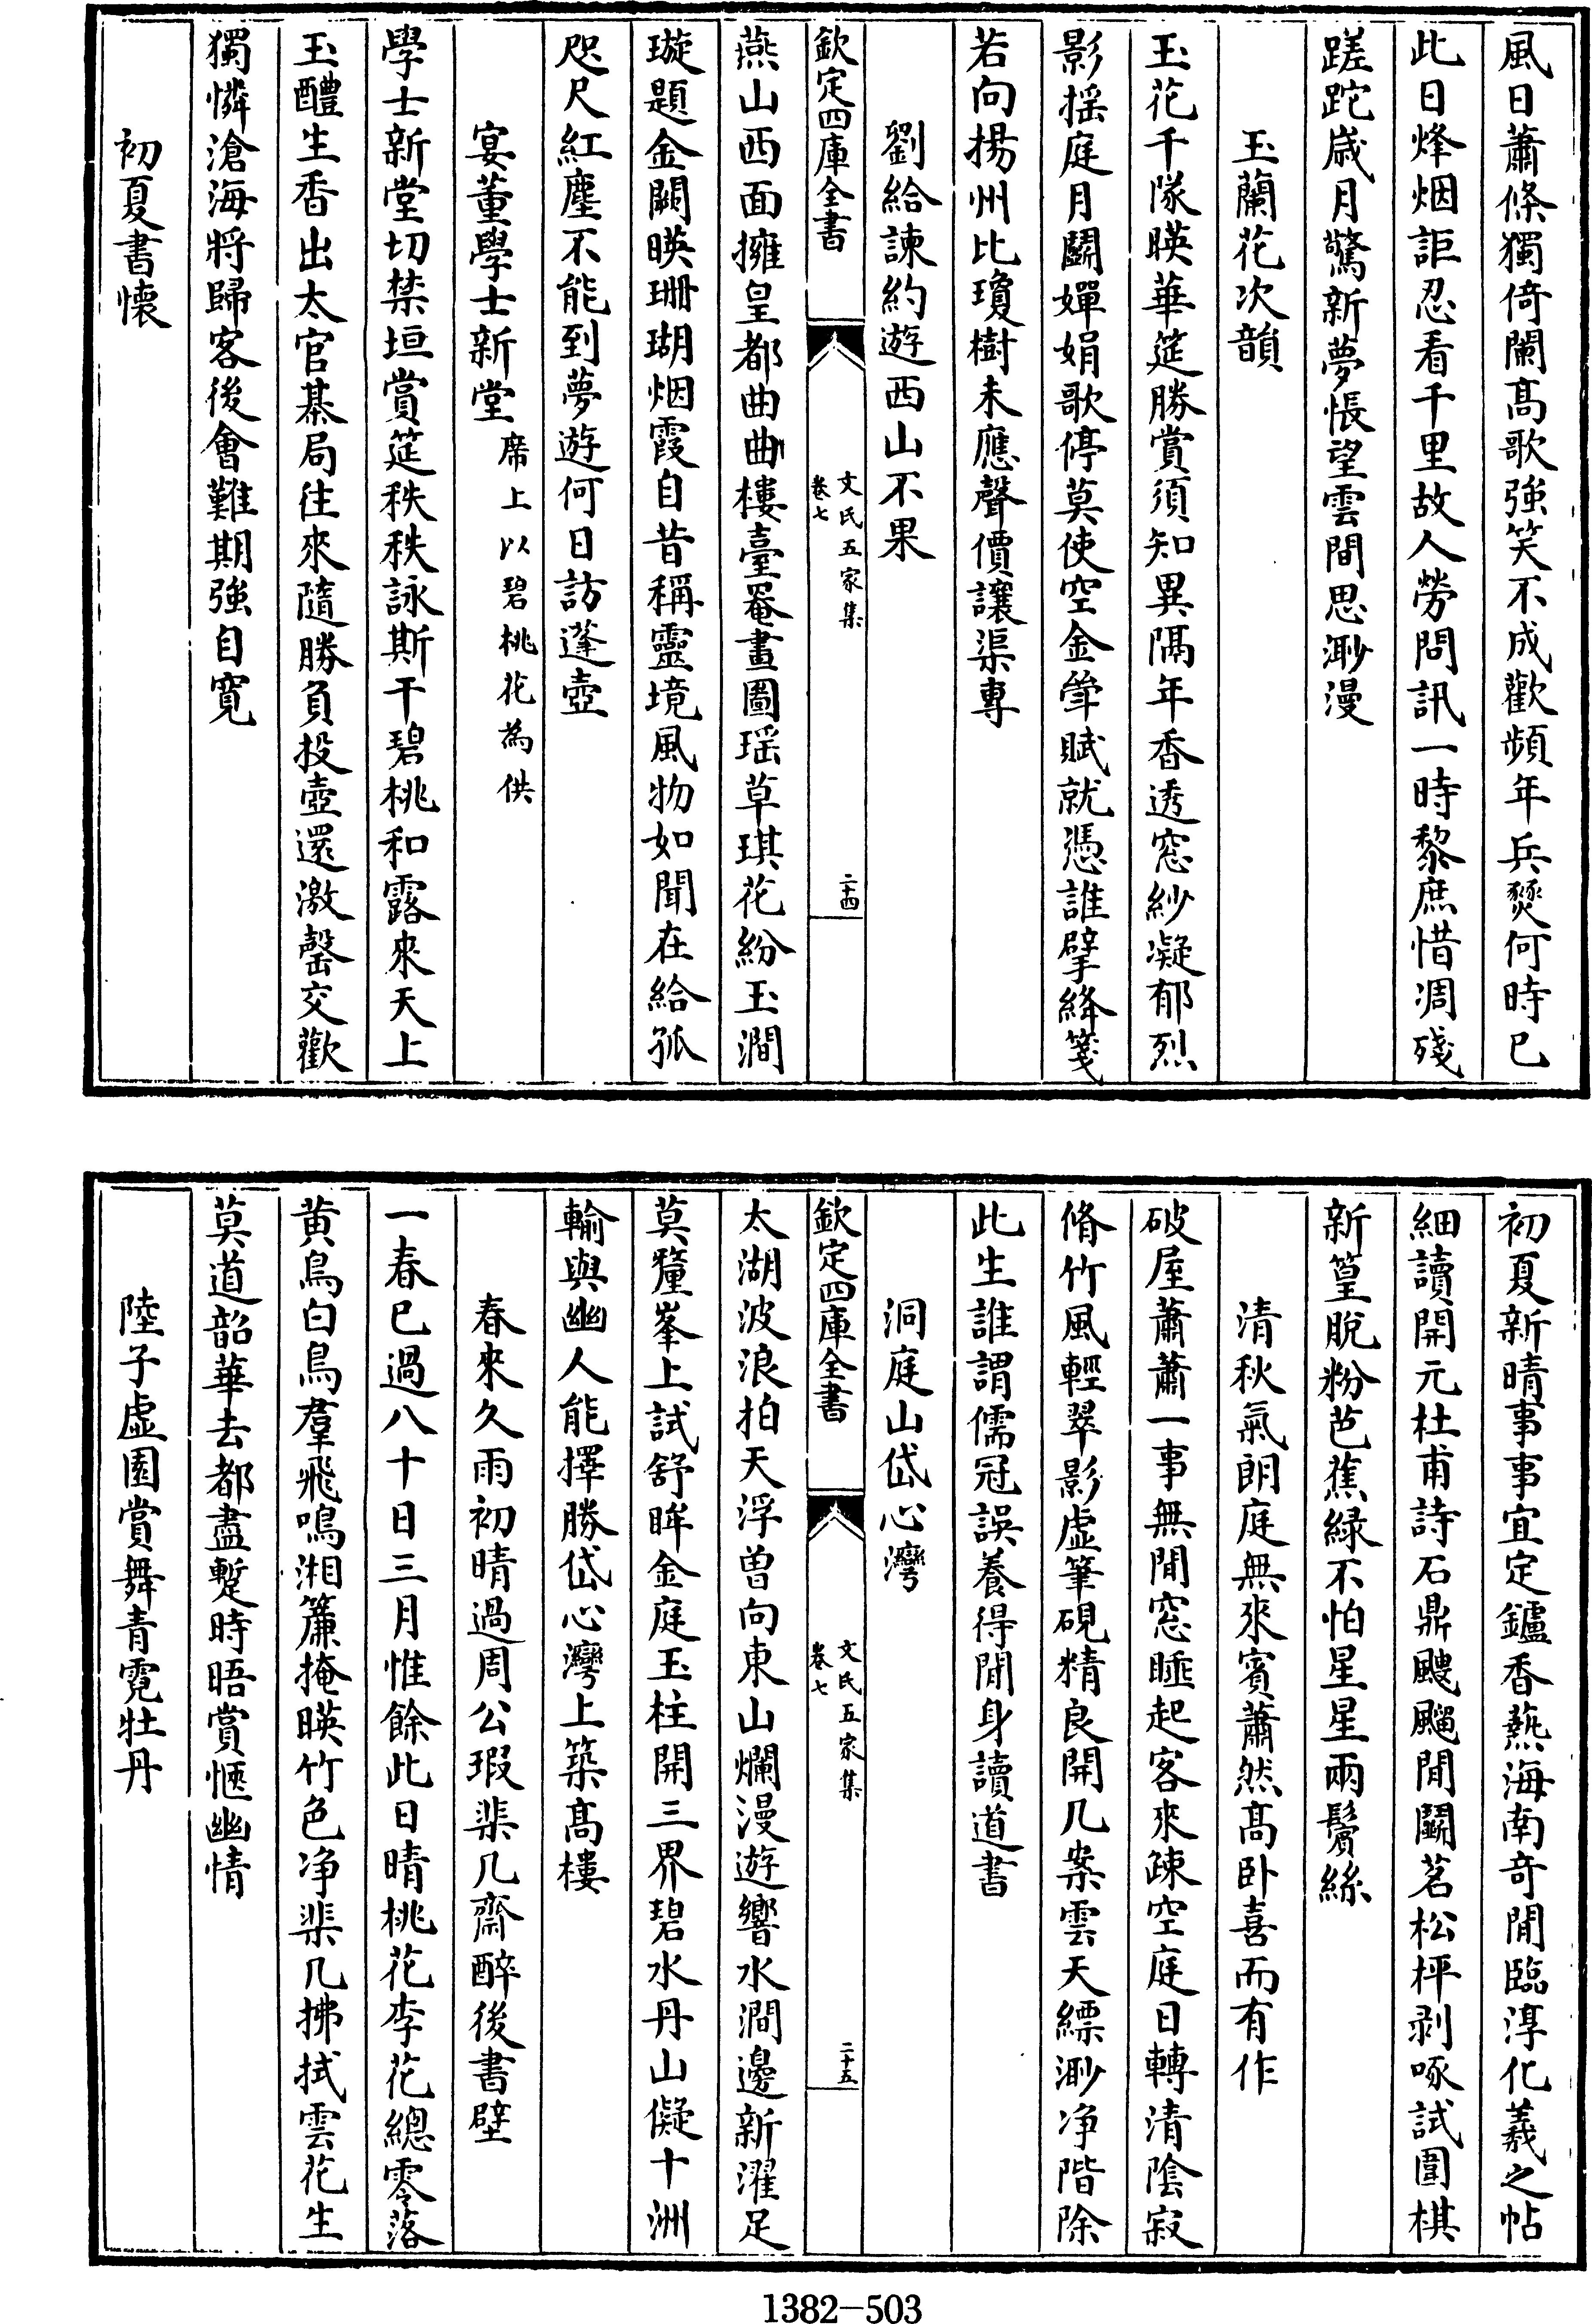 風日蕭條獨倚闌髙歌強笑不成歡頻年兵燹何時已
此日烽烟詎忍看千里故人勞問訊一時黎庶惜凋殘
蹉跎歳月驚新夢悵望雲間思渺漫
玉蘭花次韻
玉花千隊暎華筵勝賞須知異隔年香透窓紗凝郁烈
影揺庭月鬬嬋娟歌停莫使空金斚賦就憑誰擘絳箋
若向揚州比瓊樹未應聲價讓渠專
劉給諫約遊西山不果
欽定四庫全書
文氏五家集
卷七
二十四
燕山西面擁皇都曲曲樓臺罨畫圖瑶草琪花紛玉澗
璇題金闕暎珊瑚烟霞自昔稱靈境風物如聞在給孤
咫尺紅塵不能到夢遊何日訪蓬壺
宴董學士新堂席上以碧桃花為供
學士新堂切禁垣賞筵秩秩詠斯干碧桃和露來天上
玉醴生香出太官棊局往來隨勝負投壺還激罄交歡
獨憐滄海將歸客後會難期強自寛
初夏書懷
初夏新晴事事宜定鑪香爇海南竒閒臨淳化羲之帖
細讀開元杜甫詩石鼎颼飀閒鬬茗松枰剥啄試圍棋
新篁脫粉芭蕉緑不怕星星兩鬢絲
清秋氣朗庭無來賓蕭然髙卧喜而有作
破屋蕭蕭一事無閒窓睡起客來疎空庭日轉清隂寂
脩竹風輕翠影虛筆硯精良開几案雲天縹渺净階除
此生誰謂儒冠誤養得閒身讀道書
洞庭山岱心灣
欽定四庫全書
文氏五家集
卷七
二十五
太湖波浪拍天浮曽向東山爛漫遊響水澗邊新濯足
莫釐峯上試舒眸金庭玉柱開三界碧水丹山儗十洲
輸與幽人能擇勝岱心灣上築髙樓
春來久雨初晴過周公瑕棐几齋醉後書壁
一春已過八十日三月惟餘此日晴桃花李花總零落
黄鳥白鳥羣飛鳴湘簾掩暎竹色净棐几拂拭雲花生
莫道韶華去都盡蹔時晤賞愜幽情
陸子虛園賞舞青霓牡丹
1382—503